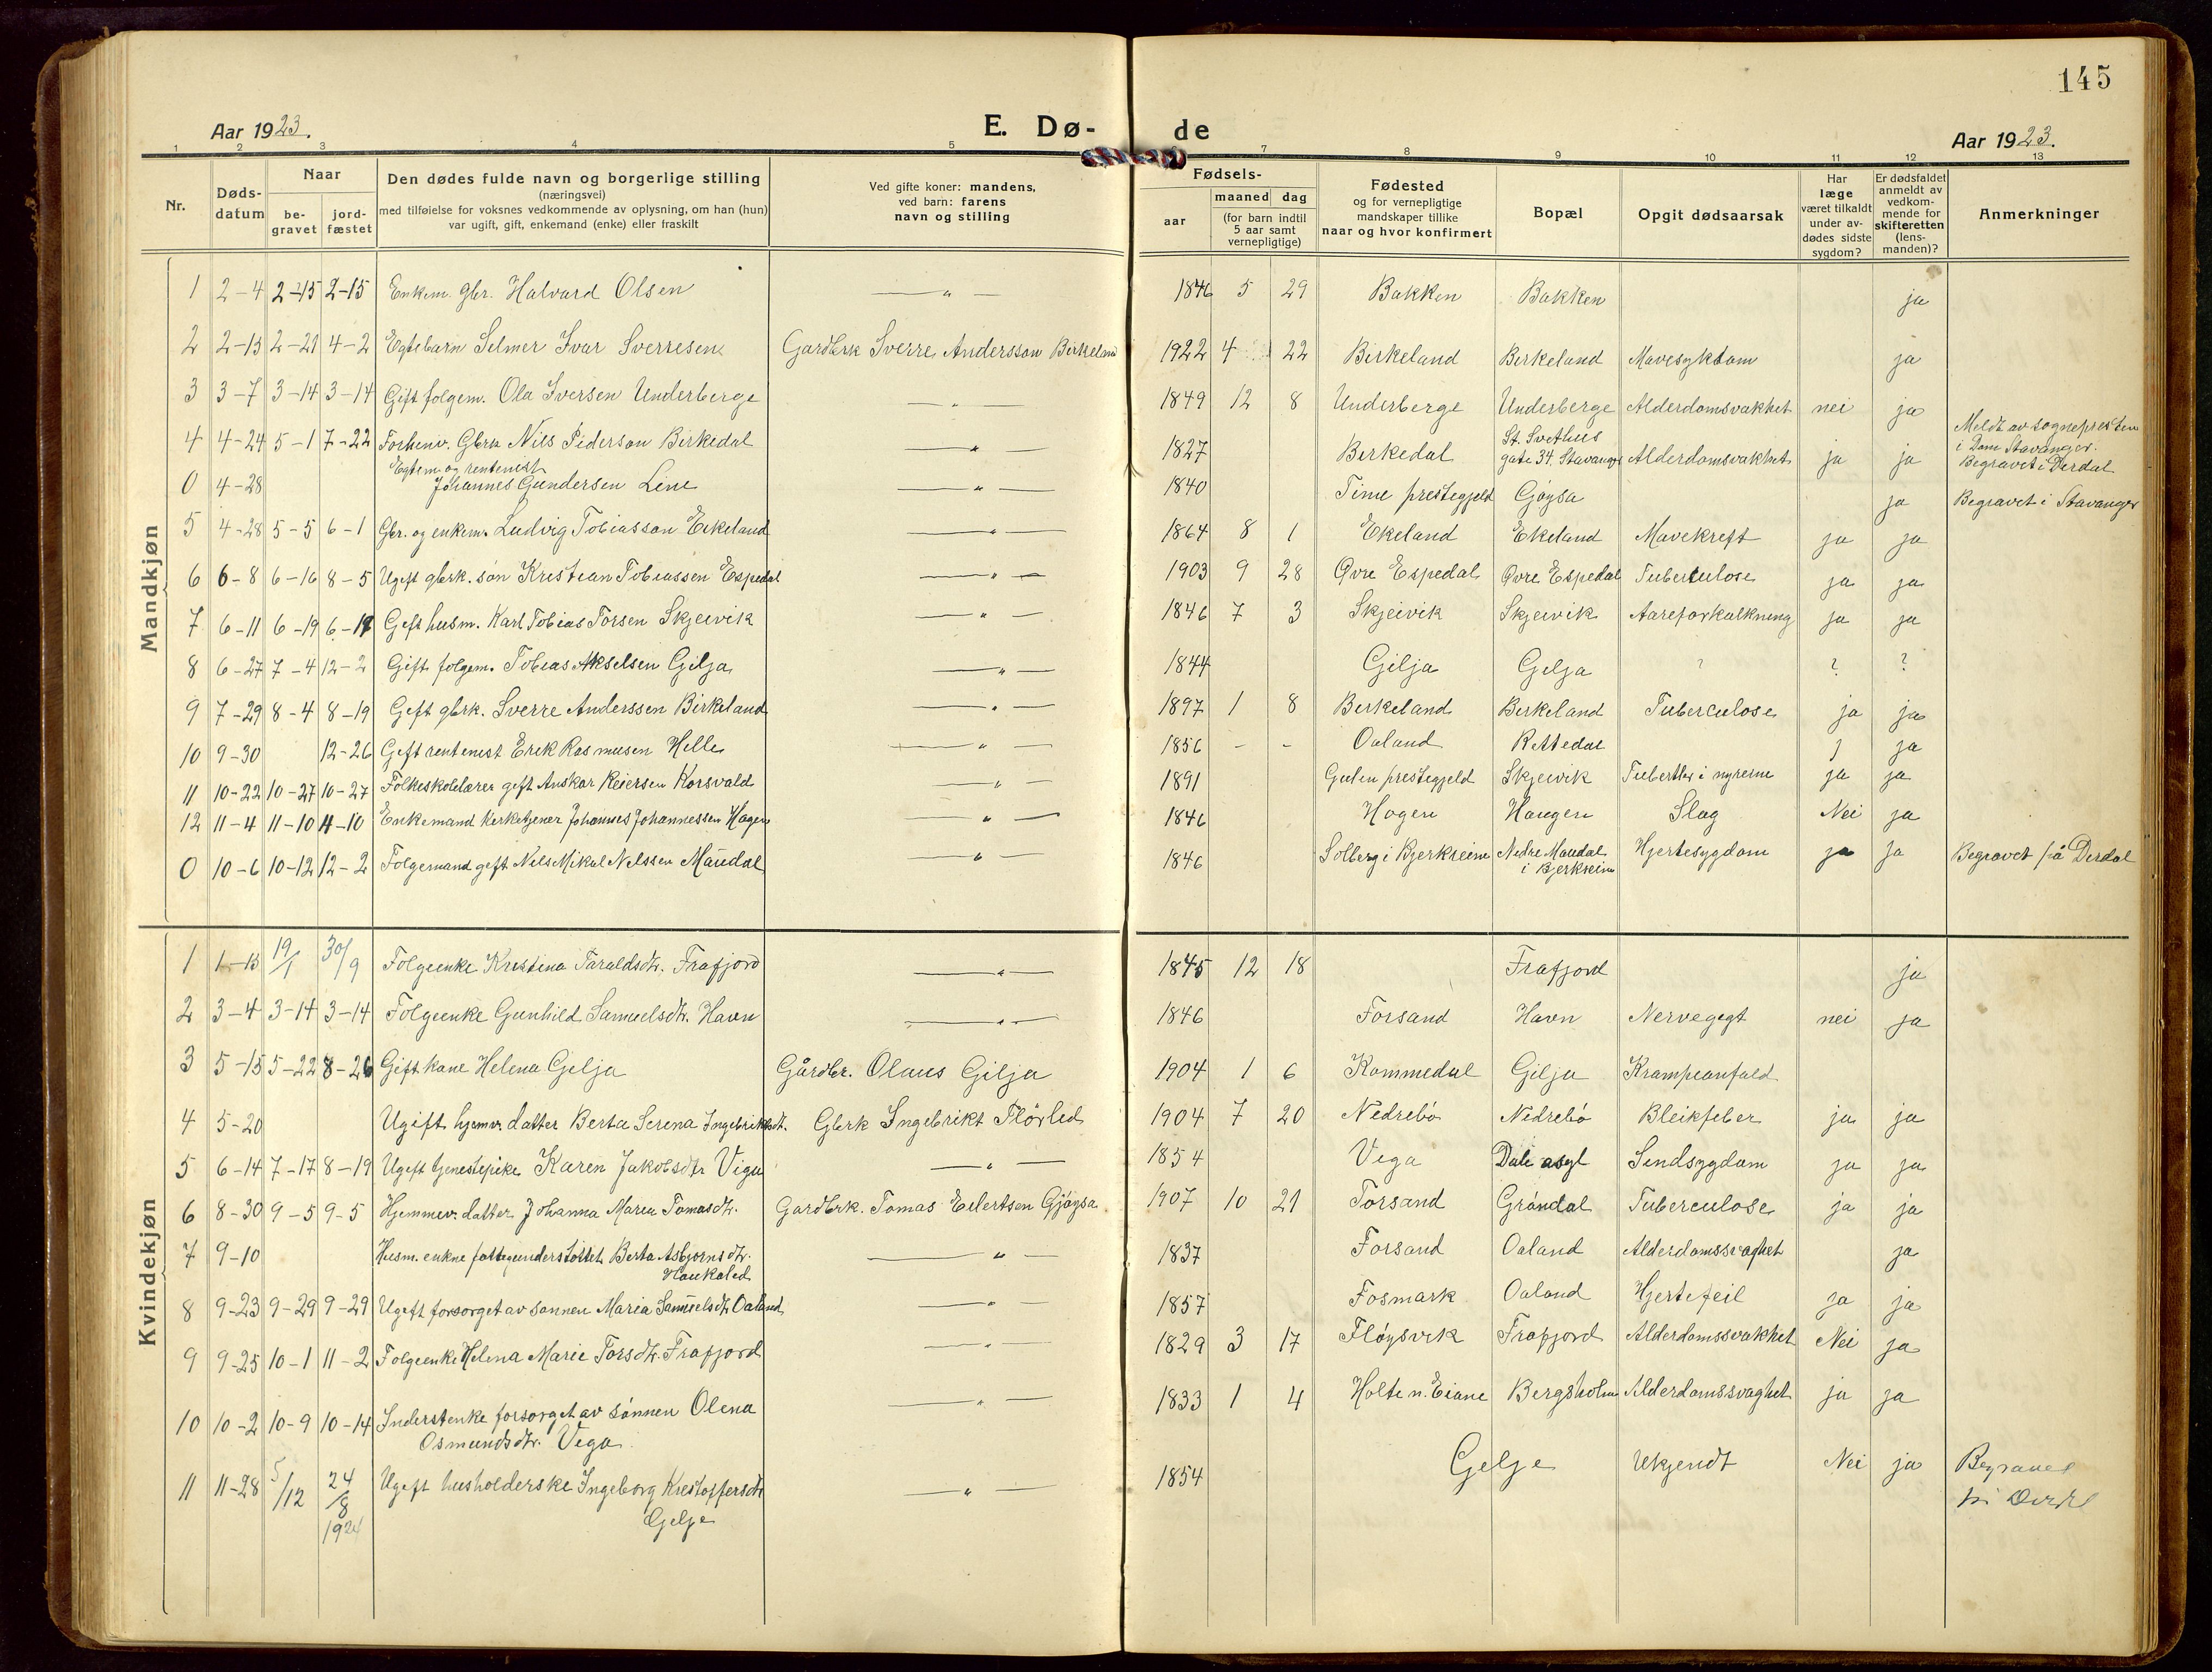 145
Aar 1923.
E. Dø-
de
Aar 1923.
1 2 3 4 5 7 8 9 10 11 12 13
Nr.
Døds-
datum
Naar
be-
gravet
jord-
fæstet
Den dødes fulde navn og borgerlige stilling
(næringsvei)
med tilføielse for voksnes vedkommende av oplysning, om han (hun)
var ugift, gift, enkemand (enke) eller fraskilt
Ved gifte koner: mandens,
ved barn: farens
navn og stilling
Fødsels-
aar
maaned dag
(for barn indtil
5 aar samt
vernepligtige)
Fødested
og for vernepligtige
mandskaper tillike
naar og hvor konfirmert
Bopæl
Opgit dødsaarsak
Har
læge
været tilkaldt
under av-
dødes sidste
sygdom?
Er dødsfaldet
anmeldt av
vedkom-
mende for
skifteretten
(lens-
manden)?
Anmerkninger
Mandkjøn
1 2-4 2-15 2-15 Enkem. gbr. Halvard Olsen — " — 1846 5 29 Bakken Bakken ja
2 2-13 2-21 4-2 Egtebarn Selmer Ivar Sverresen Gardbrk Sverre Andersson Birkeland 1922 4 22 Birkeland Birkeland Mavesykdom ja
3 3-7 3-14 3-14 Gift folgem. Ola Iversen Underberge — " — 1849 12 8 Underberge Underberge Alderdomsvakhet nei ja
4 4-24 5-1 7-22 Forhenv. Gbrk Nils Pederson Birkedal — " — 1827 Birkedal St. Svethus
gate 34, Stavanger Alderdomsvakhet ja ja Meldt av sognepresten
i Dom Stavanger.
Begravet i Dirdal
0 4-28 Egtem. og rentenist
Johannes Gundersen Line — " — 1840 Time prestegjeld Gjøysa ja Begravet i Stavanger
5 4-28 5-5 6-1 Gbr. og enkem. Ludvig Tobiasson Eikeland — " — 1864 8 1 Ekeland Ekeland Mavekreft ja ja
6 6-8 6-16 8-5 Ugift gbrk. søn Kristian Tobiassen Espedal — " — 1903 9 28 Øvre Espedal Øvre Espedal Tuberculose ja ja
7 6-11 6-19 6-19 Gift husm. Karl Tobias Torsen Skjeivik — " — 1846 7 3 Skjeivik Skjeivik Aareforkalkning ja ja
8 6-27 7-4 12-2 Gift folgem. Tobias Akselsen Gilja — " — 1844 Gilja Gilja ? ? ?
9 7-29 8-4 8-19 Gift gbrk. Sverre Anderssen Birkeland — " — 1897 1 8 Birkeland Birkeland Tuberculose ja ja
10 9-30 12-26 Gift rentenist Erik Rasmusen Helle — " — 1856 - - Oaland Rettedal j ja
11 10-22 10-27 10-27 Folkeskolelærer gift Anskar Reiersen Korsvald — " — 1891 Gulen prestegjeld Skjeivik Tubertler i nyrerne ja ja
12 11-4 11-10 11-10 Enkemand kirketjener Johannes Johannessen Hagen — " — 1846 Hagen Haugen Slag Nei ja
0 10-6 10-12 12-2 Folgemand gift Nils Mikal Nilssen Maudal — " — 1846 Solberg i Bjerkreim Nedre Maudal
i Bjerkreim Hjertesygdom ja ja Begravet på Dirdal
Kvindekjøn
1 1-13 19/1 30/9 Folgeenke Kristina Taraldsdtr. Frafjord — " — 1845 12 18 Frafjord ja
2 3-4 3-14 3-14 Folgeenke Gunhild Samuelsdtr. Havn — " — 1846 Forsand Havn Nervegigt nei ja
3 5-15 5-22 8-26 Gift kone Helena Gilja Gårdbr. Olaus Gilja 1904 1 6 Kommedal Gilja Krampeanfald
4 5-20 Ugift hjemv. datter Berta Serena Ingebriktsdt. Gbrk Ingebrikt Flörled 1904 7 20 Nedrebö Nedrebö Bleikfeber ja ja
5 6-14 7-17 8-19 Ugift tjenestepike Karen Jakobsdtr Viga — " — 1854 Vega Dale asyl Sindsygdom ja ja
6 8-30 9-5 9-5 Hjemmev. datter Johanna Maria Tomasdtr. Gardbrk. Tomas Eilertsen Gjøysa 1907 10 21 Forsand Gröndal Tuberculose ja ja
7 9-10 Husm. enkne fattigunderstöttet Berta Asbjornsdtr.
Haukaled — " — 1837 Forsand Oaland Alderdomssvaghet ja
8 9-23 9-29 9-29 Ugift forsorget av sønnen Maria Samuelsdtr Oaland — " — 1857 Fosmark Oaland Hjertefeil ja ja
9 9-25 10-1 11-2 Folgeenke Helena Marie Torsdtr. Frafjord — " — 1829 3 17 Fløysvik Frafjord Alderdomssvakhet Nei ja
10 10-2 10-9 10-14 Inderstenke forsorget av sönnen Olena
Osmundsdtr. Vega — " — 1833 1 4 Holte n. Eiane Bergsholm Alderdomssvaghet ja ja
11 11-28 5/12 24/8
1924 Ugift husholderske Ingeborg Kristoffersdtr
Gilje — " — 1854 Gilje Ukjendt Nei ja Begravet
på Dirdal